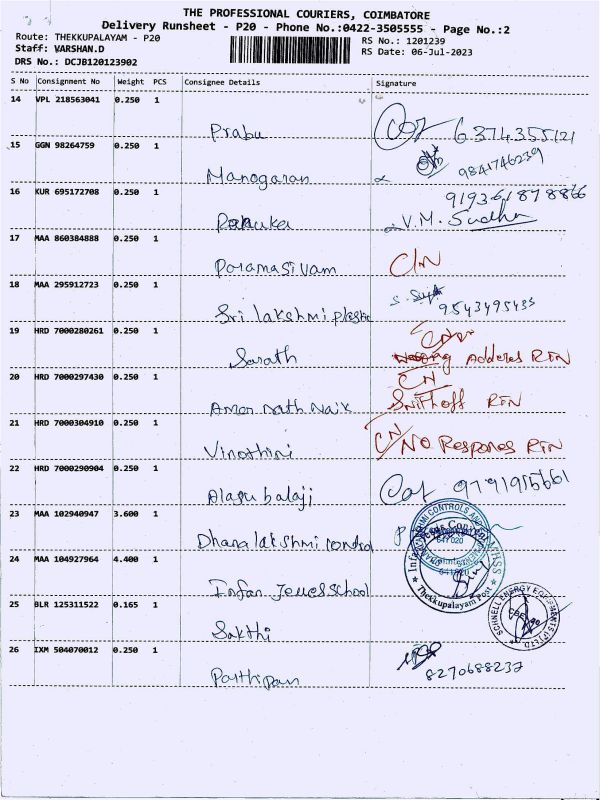 THE PROFESSIONAL COURIERS, COIMBATORE
Delivery Runsheet - P20 - Phone No.:0422-3505555 - Page No.:2
Route: THEKKUPALAYAM - P20
RS No.: 1201239
Staff: VARSHAN.D
RS Date: 06-Jul-2023
DRS No.: DCJB120123902
S No Consignment No Weight PCS Consignee Details Signature
14 VPL 218563041 0.250 1
Prabu 6374355121
15 GGN 98264759 0.250 1
Manogaran 9841746239
16 KUR 695172708 0.250 1
919361878866
V.M. Sudha
17 MAA 860384888 0.250 1
Paramasivam C/N
18 MAA 295912723 0.250 1
Sri lakshmi plastic 9543495435
19 HRD 7000280261 0.250 1
Sarath Wrong Adderes RTN
20 HRD 7000297430 0.250 1
CN
Amar nath Naik Swithoff RTN
21 HRD 7000304910 0.250 1
Vinothini CN/NO Respones RTN
22 HRD 7000290904 0.250 1
Alagu balaji 9791915661
23 MAA 102940947 3.600 1
Dhanalakshmi control
24 MAA 104927964 4.400 1
Infan Jeues School
Thekkupalayam Post
25 BLR 125311522 0.165 1
Sakthi
SCHNELL ENERGY EQUIPMENTS (P) LTD
26 IXM 504070012 0.250 1
Parthipan 8270688237